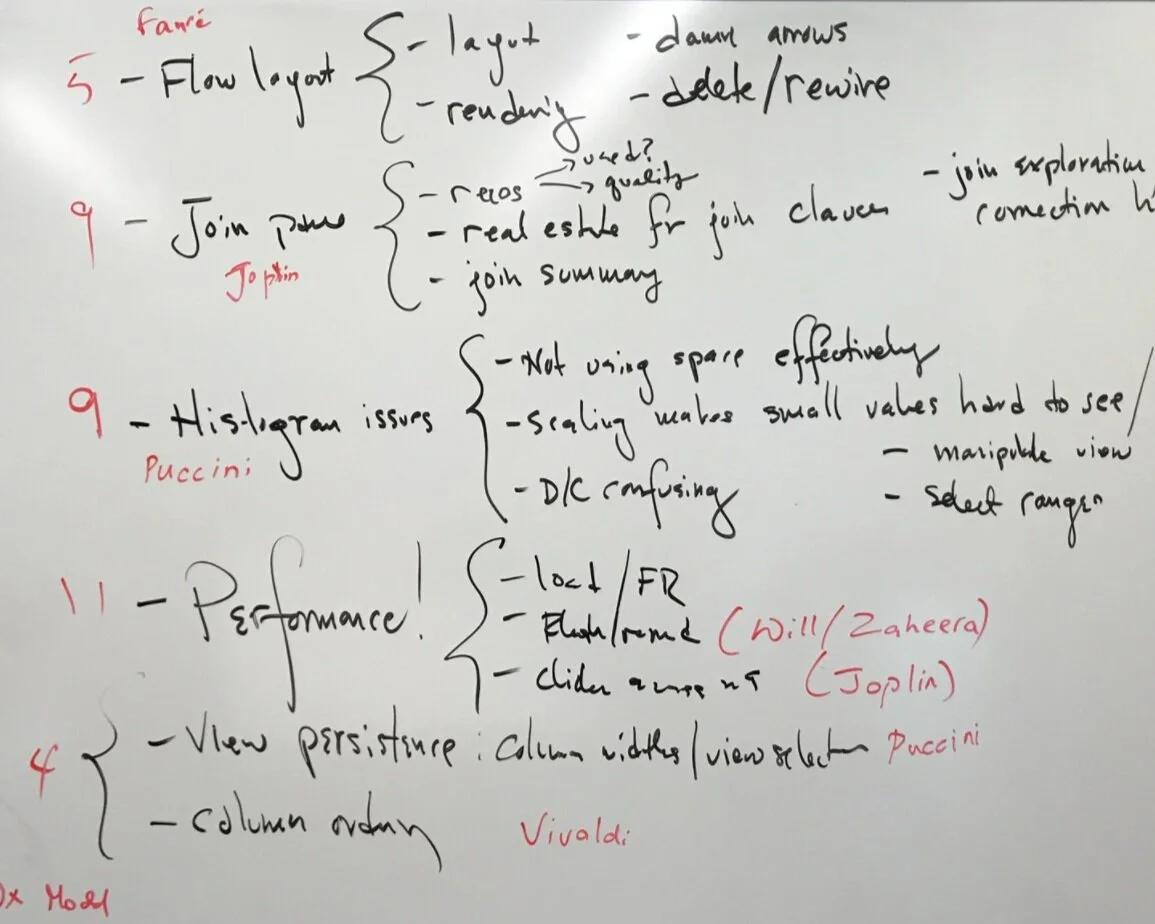 Fauré
5 - Flow layout { - layout - damn arrows
- rendering - delete/rewire
→ used?
- recos → quality - join exploration
9 - Join pane { - real estate for join clauses connection
Joplin - join summary
- Not using space effectively
9 - Histogram issues { - Scaling makes small values hard to see /
Puccini - manipulate view
- D/C confusing - select ranges
- load/FR
11 - Performance! { - (Will/Zaheera)
- (Joplin)
4 { - View persistence: column widths/view selection Puccini
- column ordering Vivaldi
Model